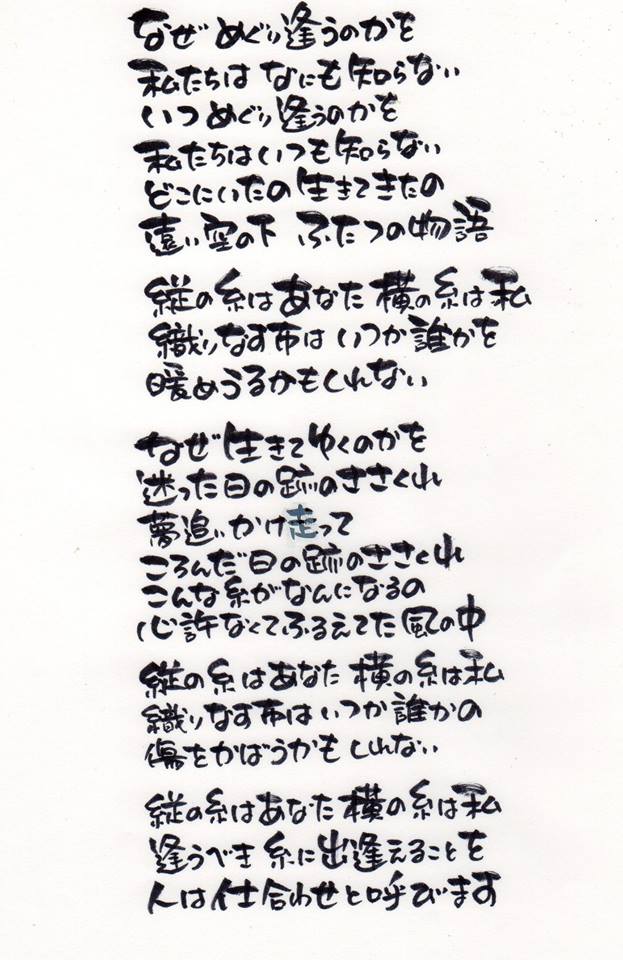 なぜ めぐり逢うのかを
私たちは なにも知らない
いつ めぐり逢うのかを
私たちはいつも知らない
どこにいたの 生きてきたの
遠い空の下 ふたつの物語
縦の糸はあなた 横の糸は私
織りなす布は いつか誰かを
暖めうるかもしれない
なぜ 生きてゆくのかを
迷った日の跡のささくれ
夢追いかけ走って
ころんだ日の跡のささくれ
こんな糸がなんになるの
心許なくてふるえてた風の中
縦の糸はあなた 横の糸は私
織りなす布は いつか誰かの
傷をかばうかもしれない
縦の糸はあなた 横の糸は私
逢うべき 糸に出逢えることを
人は 仕合わせと呼びます